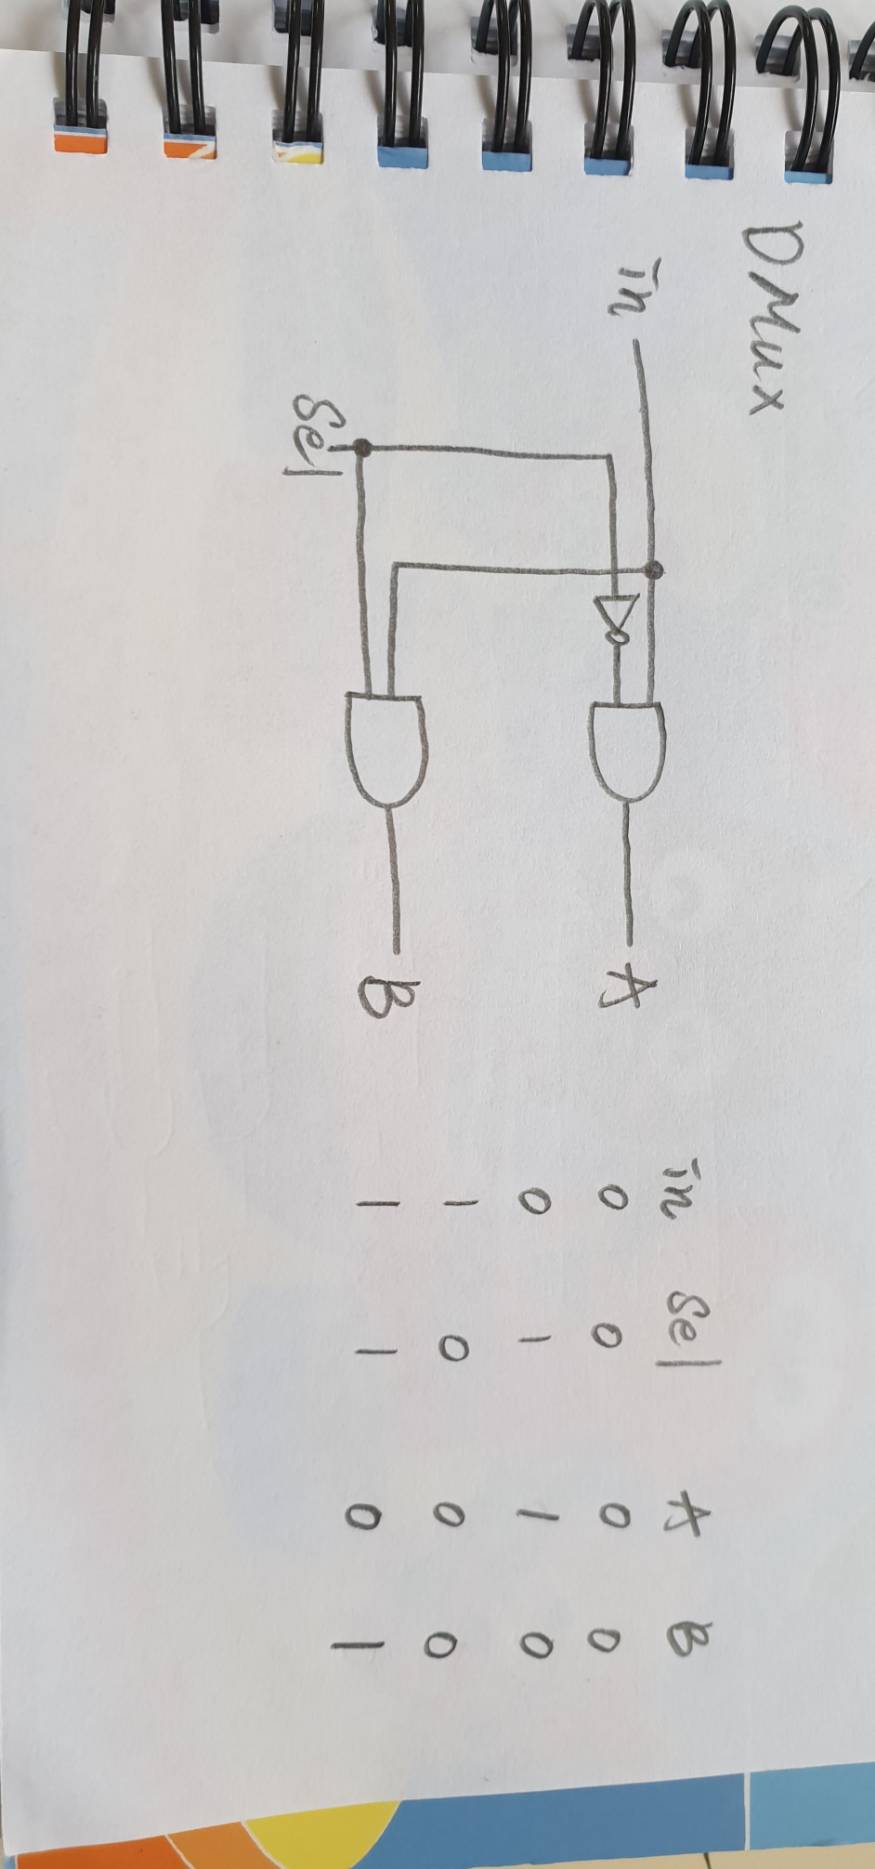 DMux
in
A
B
Sel
in Sel A B
0 0 0 0
0 1 1 0
1 0 0 0
1 1 0 1